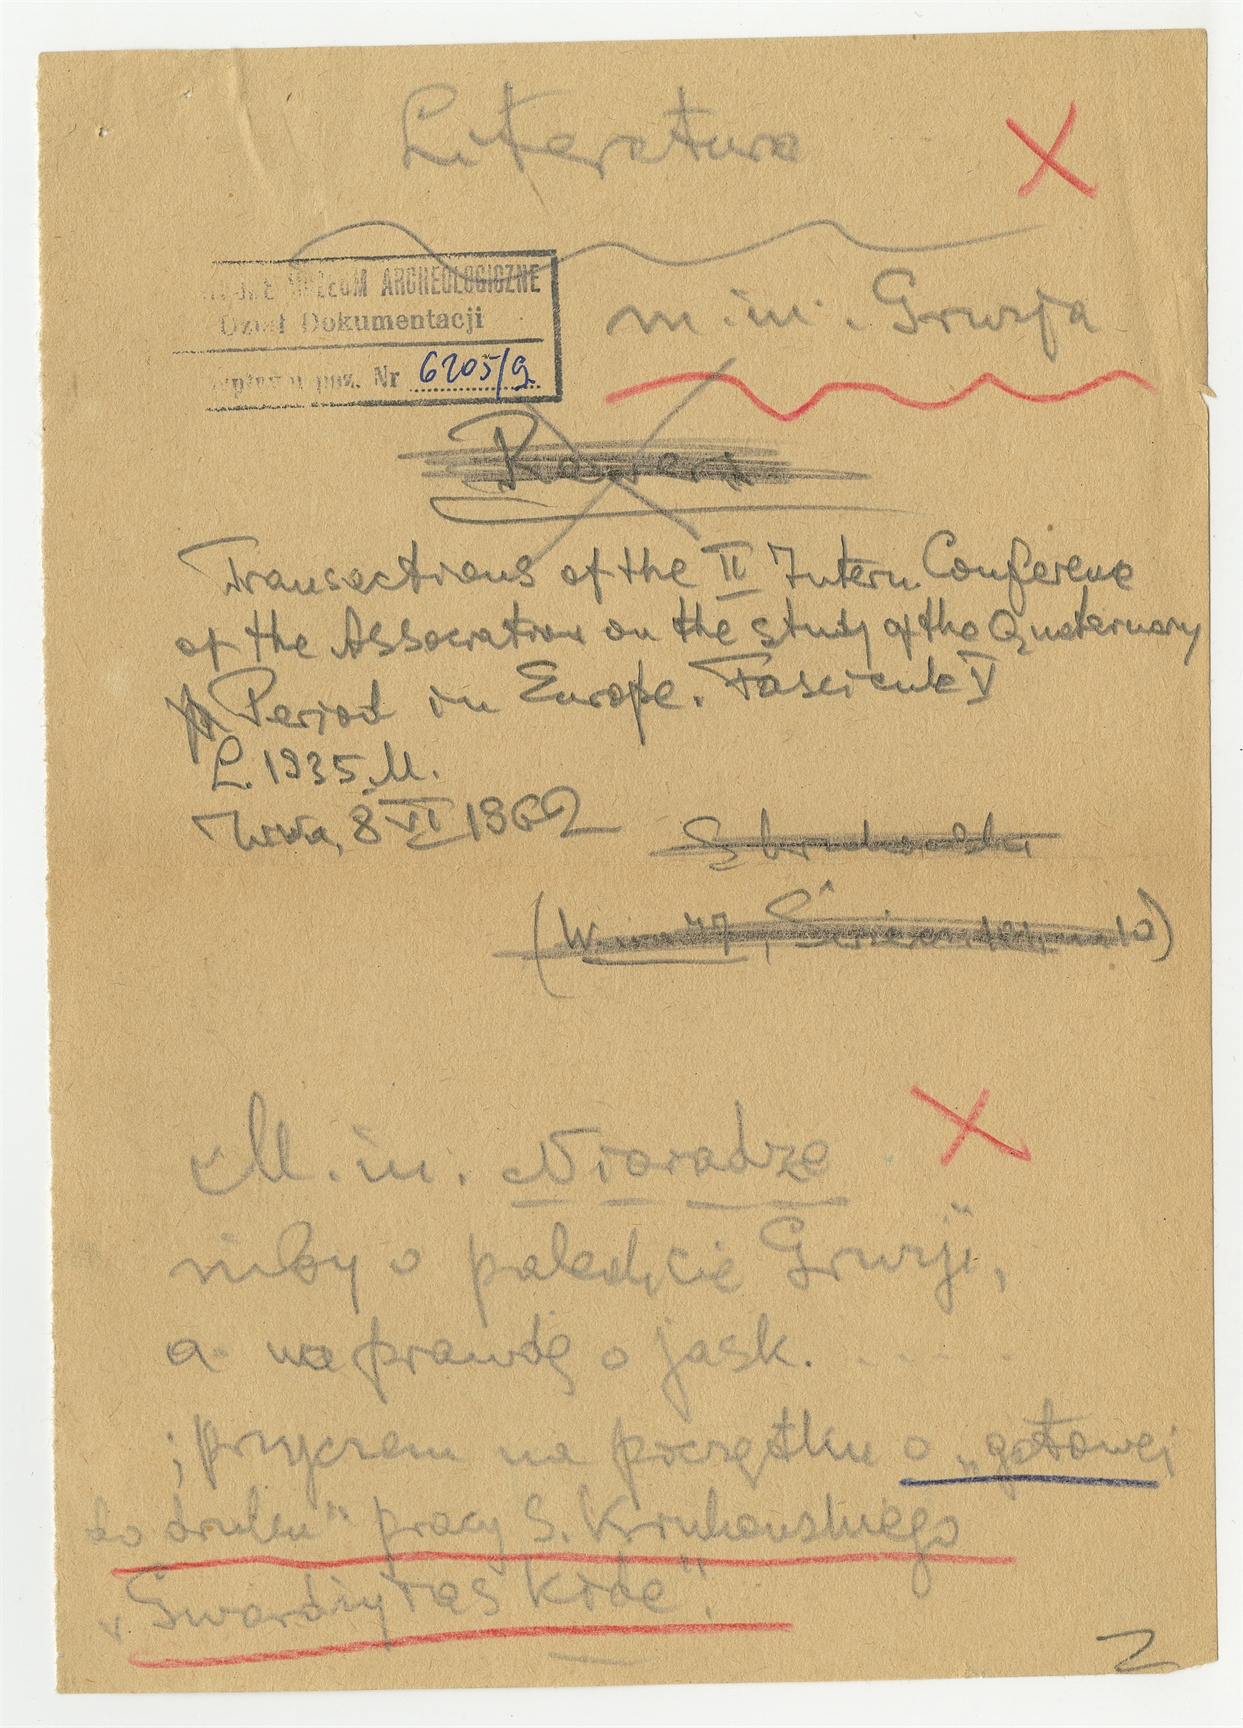 Literatura
MUZEUM ARCHEOLOGICZNE
Dział Dokumentacji
poz. Nr 6205/9
m. in. Gruzja
Transactions of the II Intern. Conference
of the Association on the study of the Quaternary
Period in Europe. Fascicule V
L. 1935 M.
8 VI 1962
M. in. Nioradze
niby o paleolicie Gruzji,
a naprawdę o jask. . . . .
; przyczem na początku o „gotowej
do druku" pracy S. Krukowskiego
„Gwardżyłas Kłde".